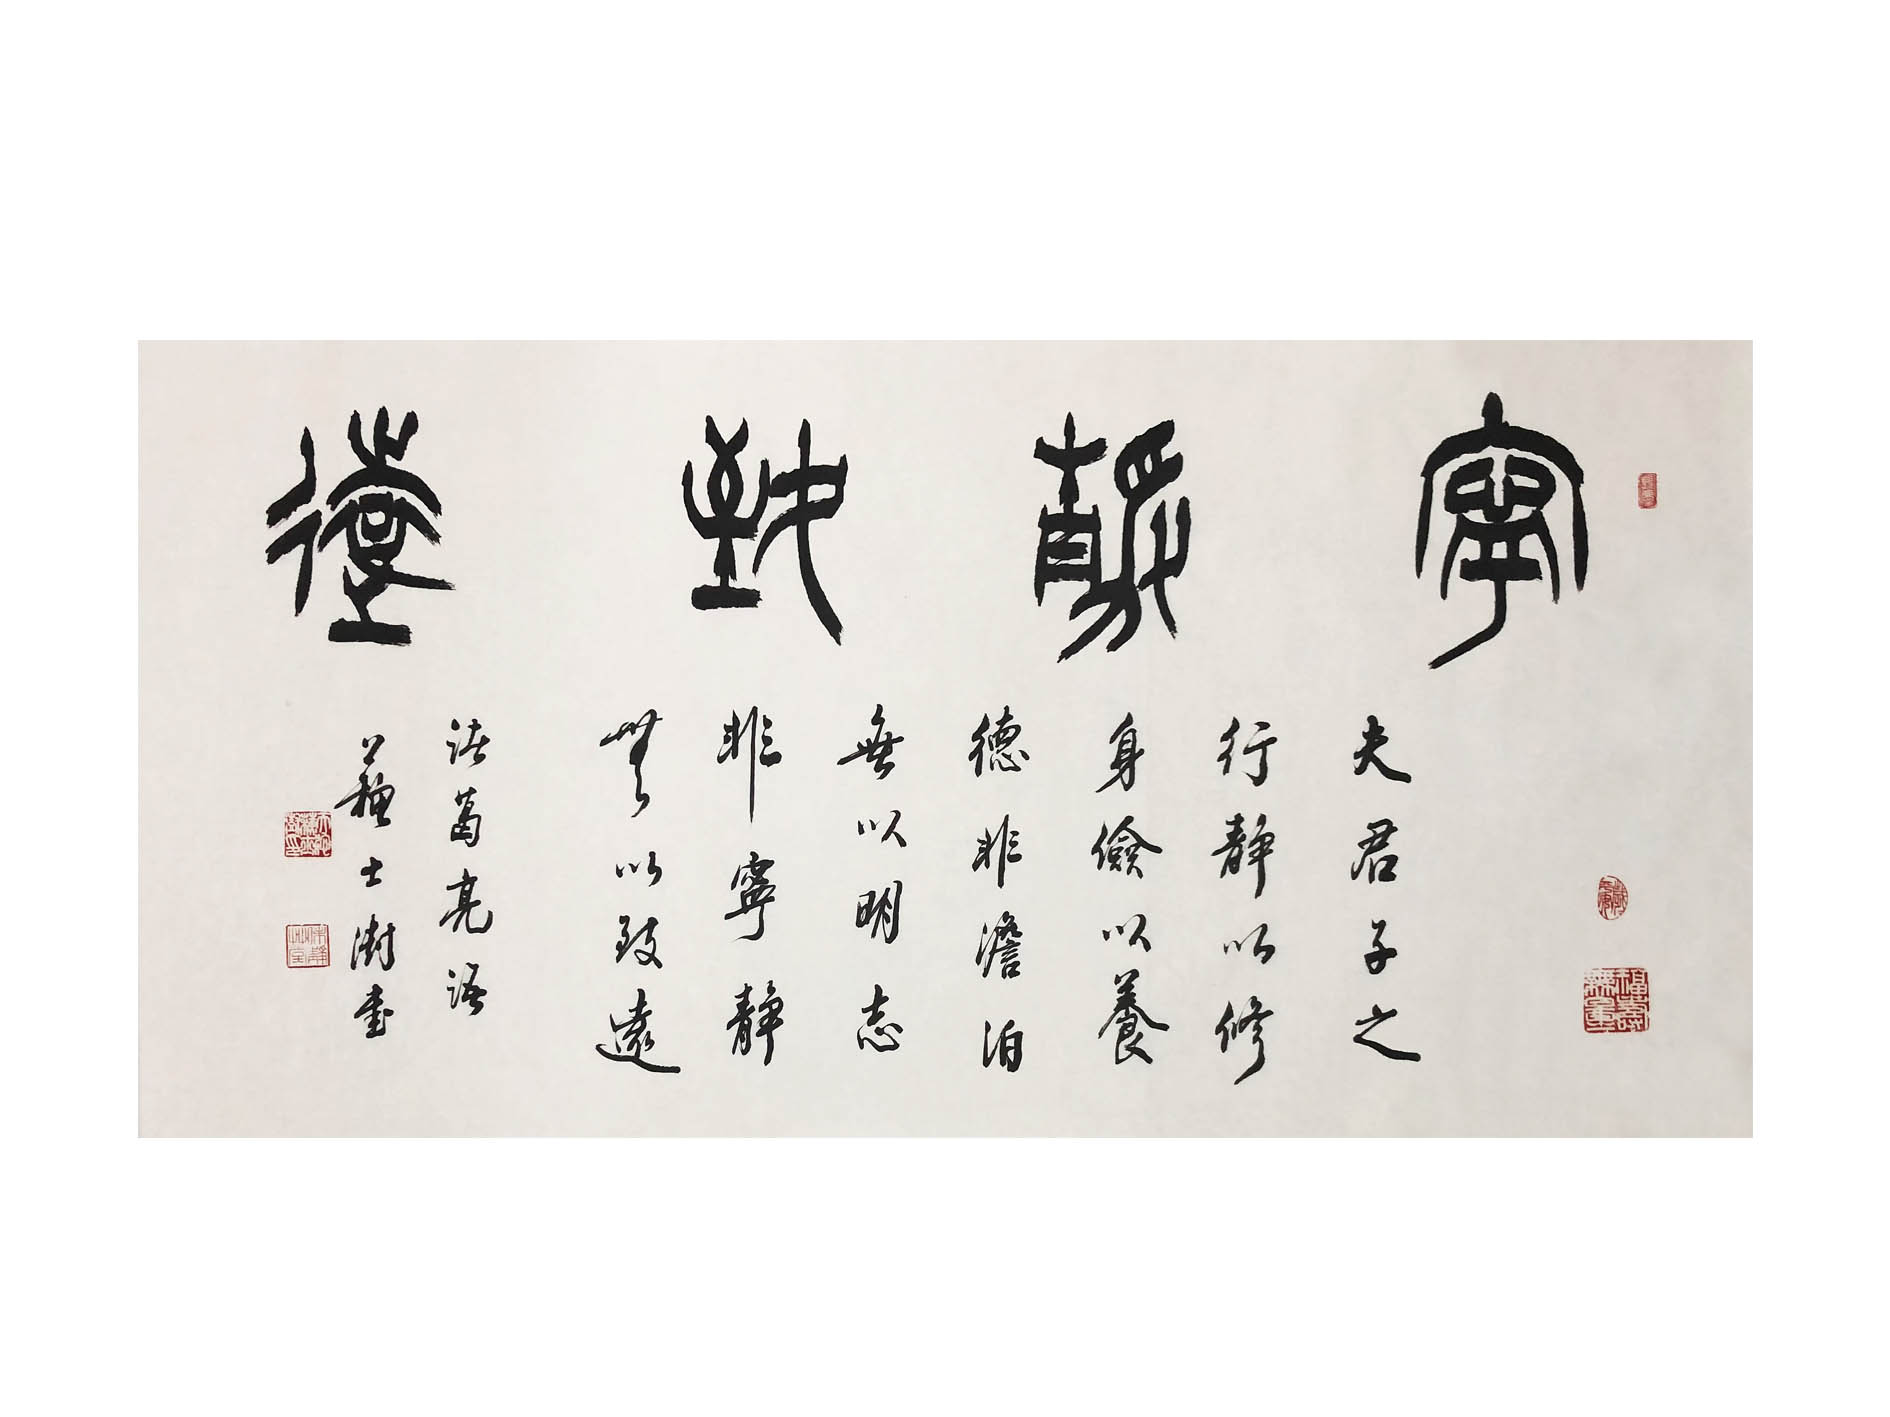 寧靜致遠
夫君子之
行靜以修
身儉以養
德非澹泊
無以明志
非寧靜
無以致遠
諸葛亮語
蘇士澍書
福壽無量